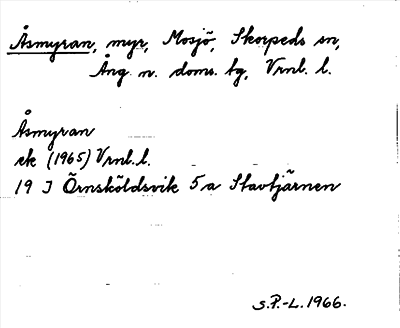 Åsmyran, myr, Mosjö, Skorpeds sn,
Ång n. doms. tg, Vrnl. l.
Åsmyran
ek (1965) Vrnl. l.
19 I Örnsköldsvik 5a Stavtjärnen
S.P.-L. 1966.